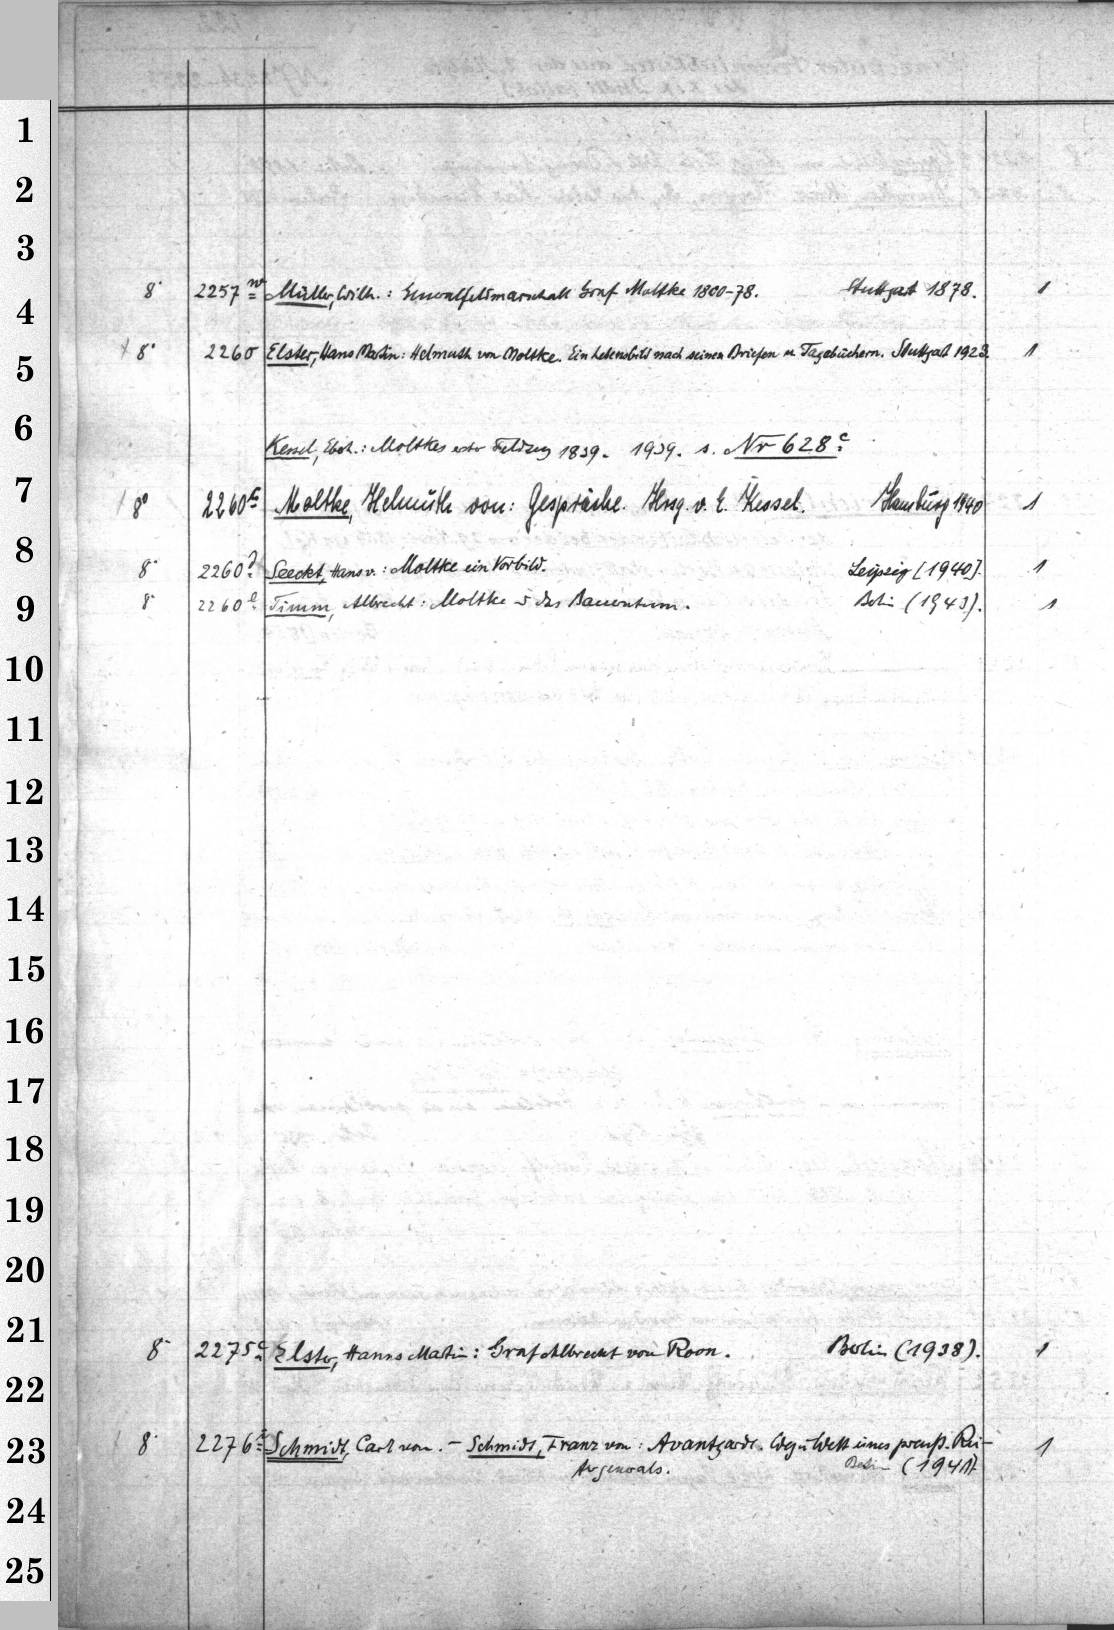 1
2
3
8° 2257 m Müller, Wilh.: Generalfeldmarschall Graf Moltke 1800-78. Stuttgart 1878. 1
4
8° 2260 Elster, Hans Martin: Helmuth von Moltke. Ein Lebensbild nach seinen Briefen u Tagebüchern. Stuttgart 1923. 1
5
6
Kessel, Ebh.: Moltkes erster Feldzug 1839. 1939. s. Nr 628 c
7
8° 2260 c Moltke, Helmuth von: Gespräche. Hrsg. v. E. Kessel. Hamburg 1940 1
8
8° 2260 Seeckt, Hans v.: Moltke ein Vorbild. Leipzig (1940). 1
8° 2260 e Timm, Albrecht: Moltke u das Bauerntum. Berlin (1943). 1
9
10
11
12
13
14
15
16
17
18
19
20
21
8° 2275 c Elster, Hanns Martin: Graf Albrecht von Roon. Berlin (1938). 1
22
8° 2276 Schmidt, Carl von. – Schmidt, Franz von: Avantgarde. Weg u Welt eines preuß. Rei- 1
23
tergenerals. Berlin (1941)
24
25